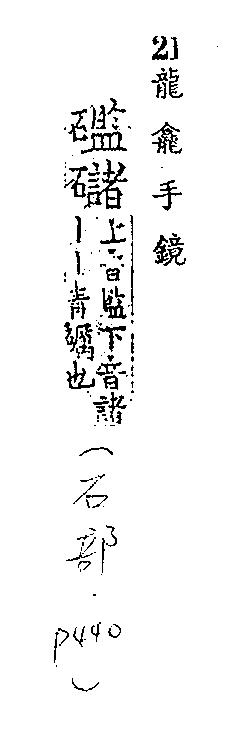 21龍龕手鏡
礛䃴
上音監下音諸
丨丨青礪也
(石部.P440)